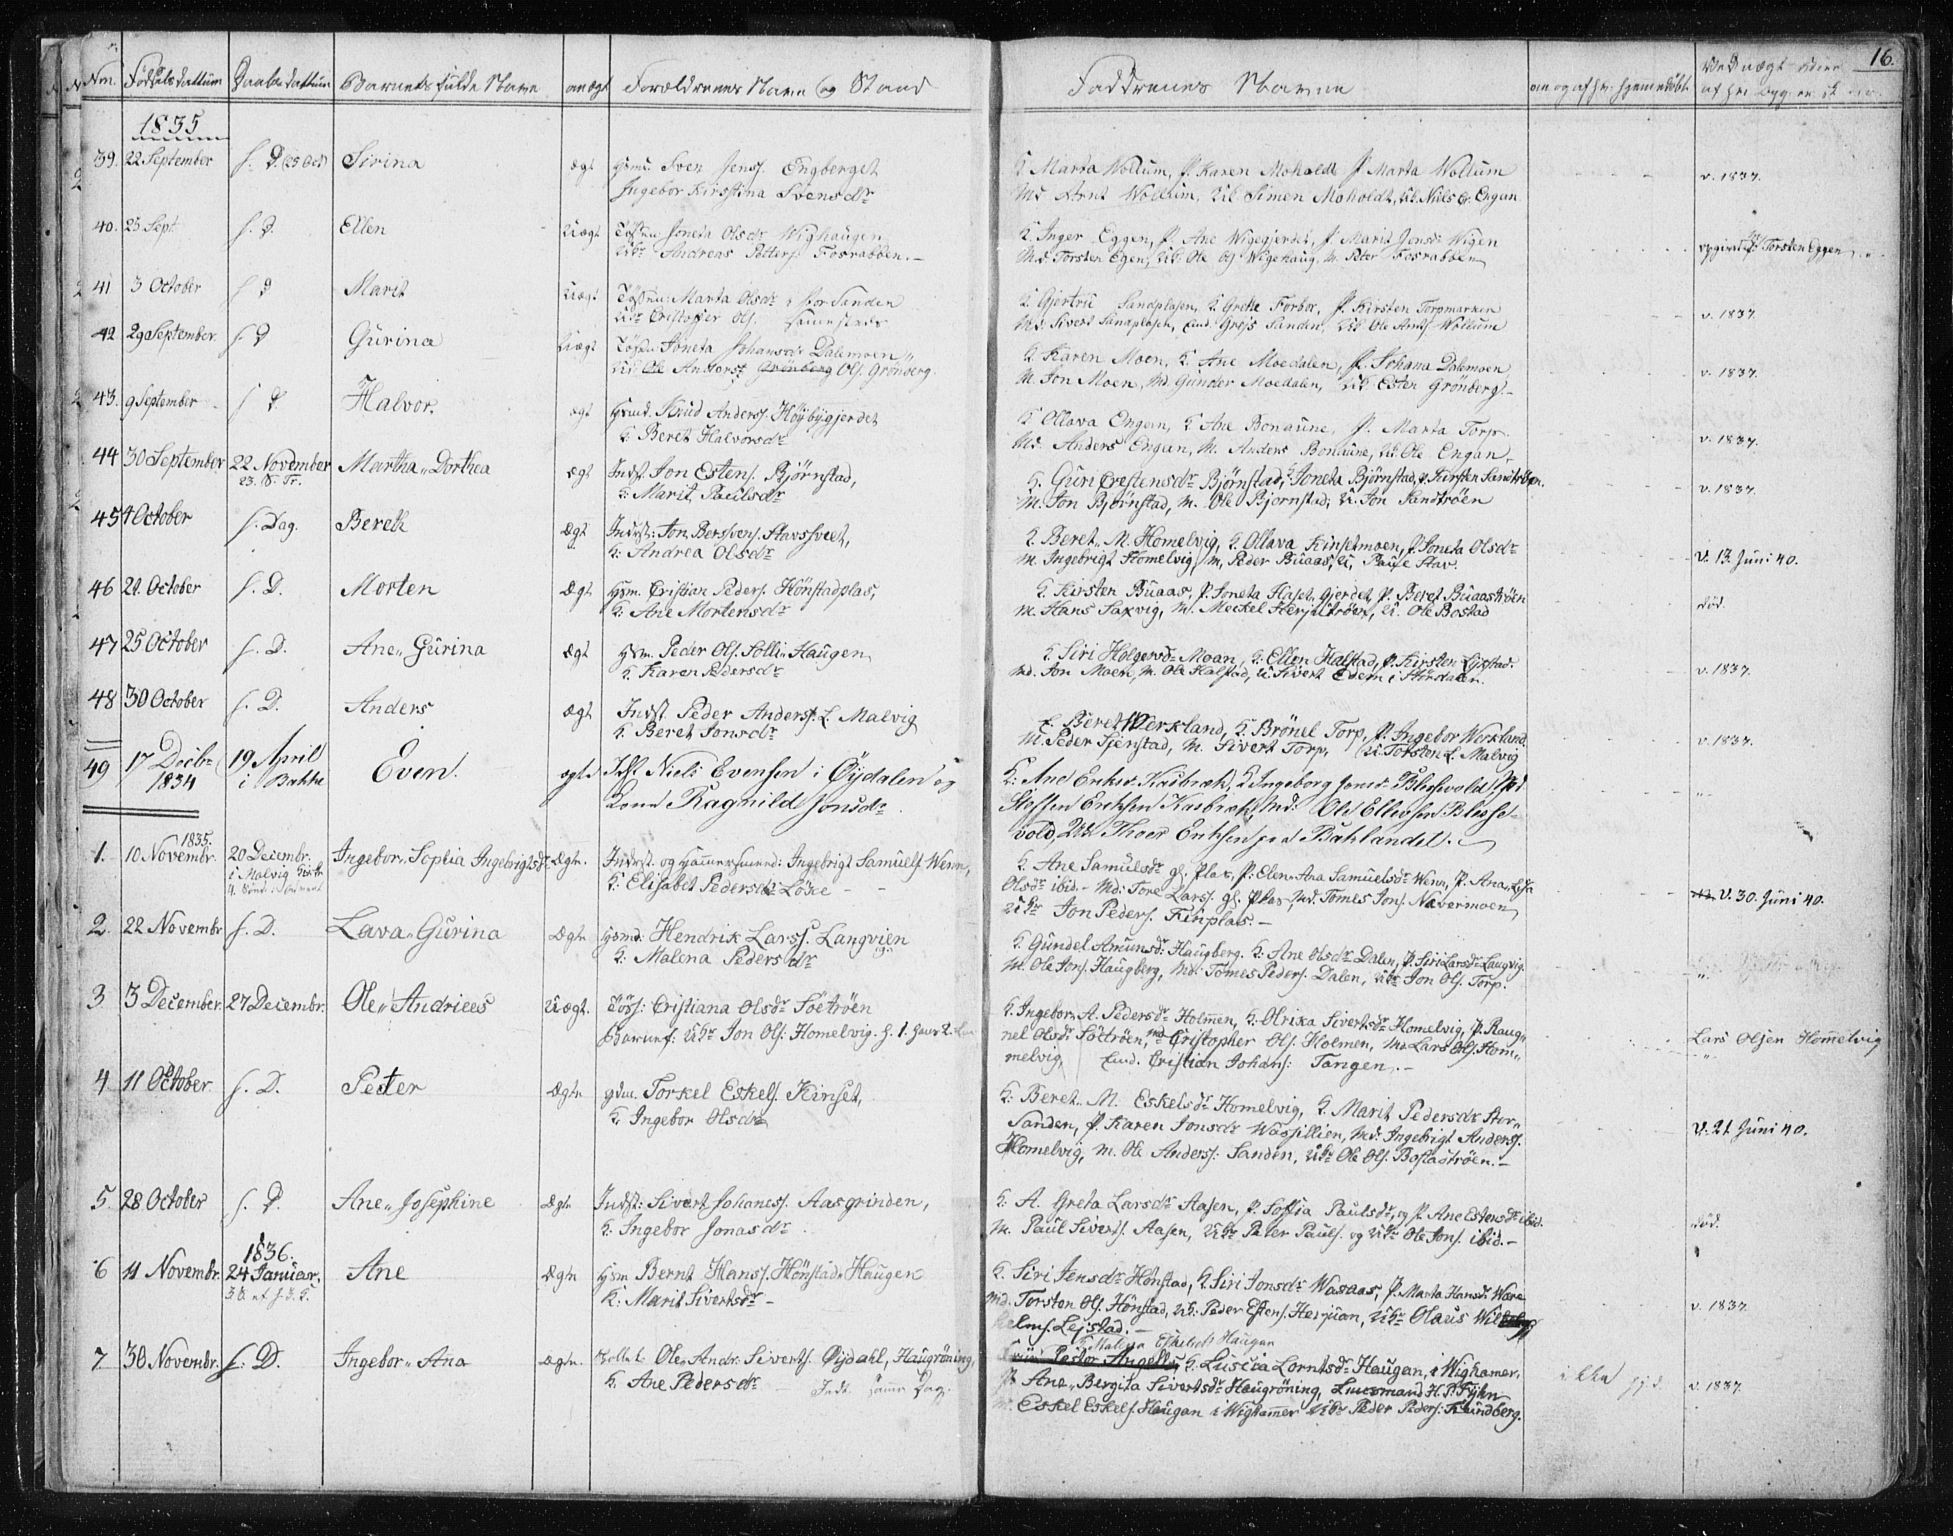 16.
Nm. Fødsels Dattum Daabs Dattum Barnets fulde Navn uægt Foreldrenes Navn og Stand Faddrenes Navne
1835
39. 22 September f. D. (25 Oct) Sirina ægt Hsmd. Sven Jens. Engberget
Ingebor Kirstina Svensdr
K Marta Wollum, P. Karen Moholdt P. Marta Wollum
Md Arnt Wollum, Uk Simen Moholdt, Uk. Niels Engan
v. 1837.
40. 25 Sept f. D. Ellen Uægt Tøsen: Joneta Olsdr Wighaugen
Ukr Andreas Petters. Fosrabben.
K Inger Eggen, P. Ane Wigegjerdet, P. Marit Jonsdr Wigen
Md. Torsten Egen, Uk. Ole Wigehaug, M. Peter Fosrabben
opgivet Torsten Eggen
41 3 October f D Marit Uægt Tøsen: Marta Olsdr Sanden
Ukr Cristoffer Ols.
K Gjertru Sandplasen, K Grethe Forbor, P. Kirsten Torpmarken
Md. Sivert Sandplasen, Sanden, Uk Ole Arnts. Wollum
v. 1837.
42 29 September f D Gurina Uægt Tøsen Joneta Johansdr Dalemoen
Ole Anders. Ols. Grønberg.
K Karen Moen, K Ane Moedalen, P. Johana Dalemoen
M. Jon Moen, Md. Gunder Moedalen, Uk. Esten Grønberg.
v. 1837.
43. 9 September f D. Halvor. ægt Hsmd. Knud Anders. Høybygjerdet
K: Beret Halvorsdr
K Ollava Engan, K Ane Bonaune, P. Marta Torp.
Md. Anders Engan, M. Anders Bonaune, Uk. Ole Engan.
v. 1837.
44 30 September 22 November Martha,, Dorthea ægt Indst. Jon Estens. Bjørnstad,
23. S. Tr.
K: Marit Paulsdr
K. Guri Crestensdr Bjørnstad, Joneta Bjørnstad, Kirsten Sandtrøen.
M. Jon Bjørnstad, M. Ole Bjørnstad, U. Jon Sandtrøen
v. 1837.
45 4 October f. Dag. Bereth ægt Indst: Jon Berssvens. Stavssveet,
K: Andrea Olsdr
K. Beret,, M. Homelvig, K. Ollava Kinsetmoen, P. Joneta Olsdr
M. Ingebrigt Homelvig, M. Peder Buaas, U. Paul Stav.
V. 13 Juni 40.
46 21. October f. D. Morten Ægt Hsm. Cristian Peders. Hønstadplas,
K: Ane Mortensdr
K. Kirsten Buaas, P. Joneta Gjerdet P. Beret Buaastrøen
M. Hans Saxvig, M. Meckel Herjutrøen, U. Ole Bostad
død.
47 25 October f. D. Ane,, Gurina ægt Hsm. Peder Ols. Solli,, Haugen
K. Karen Pedersdr
K Siri Holgersdr Moan, K. Ellen Halstad, P. Kirsten
Md. Jon Moen, M. Ole Halstad, U. Sivert Edem i Stordalen.
v. 1837.
48 30 October f. D. Anders ægt Indst Peder Anders. L. Malvig
K. Beret Jonsdr
K. Beret Werkland, K. Brønel Torp, P. Ingebor Werkland
M. Peder Sjenstad, M. Sivert Torp, U. Torsten L. Malvig
v. 1837.
49 17 Decbr 1834 19 April i Bakke Even. ægte Indst Niels Evensen i Øydalen og
Kone Ragnild Jonsdr.
K: Ane Eriksdr Kasbrak, K Ingeborg Jonsd. Blessevold, Md:
Steffen Eriksen Kasbrak, Md: Ole Ellevsen Blesse-
vold, Uk Thoer Eriksen paa Bahlandet.
1. 1835. 10 Novembr. 20 Decembr. Ingebor,, Sophia Ingebrigtsdr ægte. Indrst. og Hammersmed: Ingebrigt Samuels. Wenn,
i Malvig Kirke
4. Sønd. i Advent
K: Elisabet Pedersdr Løxe
K. Ane Samuelsdr gl. Plas, P: Elen,, Ana Samuelsdr Wenn, P. Ana,, Lisa
Olsdr ibid. - Md: Tore Lars. gl. Plas, Md. Tomes Jons. Navermoen,
Ukr Jon Peders. Finplas.
V. 30. Juni 40.
2. 22 Novembr f. D. Lava,, Gurina Ægte Hsmd: Hendrik Lars. Langvien
K: Malena Pedersdr
K Gundel Amunsdr Haugberg. K. Ane Olsdr Dalen, P. Siri Larsdr Langvig.
M. Ole Jons. Haugberg, Md: Tomes Peders. Dalen, Ukr Jon Ols. Torp.
3 3 December. 27 Decembr. Ole,, Andrices Uægt. Tøs: Cristiana Olsdr Søetrøen
Barnef: Ukr Jon Ols. Homelvig.
K. Ingebor,, A. Pedersdr Holmen, K. Olrika Sivertsdr Homelvig, P. Raug,,
nel Olsdr Søetrøen, Md Cristopher Ols. Holmen, Md Lars Ols. Hom,,
melvig, Cristian Johans: Tangen.
Lars Olsen Homelvig
4. 11 October f. D. Peter Ægte gdm. Torkel Eskels. Kinset,
K. Ingebor Olsdr
K: Beret,, M. Eskelsdr Homelvig, K. Marit Pedersdr Stor,,
Sanden, P. Karen Jonsdr Wassillien, Md. Ingebrigt Anders.
Homelvig, M. Ole Anders: Sanden, Ukr Ole Ols. Bostadtrøen.
V. 21 Juni 40.
5. 28 October f. D. Ane,, Josephine Ægte Indst: Sivert Johanes. Aasgrinden,
K: Ingebor Jonasdr
K. A. Greta Larsdr Aasen, P. Soffia Paulsdr, og P. Ane Estensdr ibid.
M. Paul Siverts. Aasen, Ukr Peter Pauls. og Ukr Ole Jons. ibid.
død.
6 11 Novembr. 1836. 24 Januar, Ane Ægte Hsm Bernt Hans. Hønstad,, Haugen
K: Marit Sivertsdr
K. Siri Jensdr Hønstad, K. Siri Jonsdr Wasaas, P. Marta Hansd. Ware
Md. Torsten Ols. Hønstad, Uk. Peder Estens. Herjuan, Ukr Olaus Wil
helms. Lejstad.
v. 1837.
7 30 Novembr. f. D. Ingebor,, Ana Ægte. Ole,, Andr. Siverts. Øydahl, Haugrøning,
K: Ane Pedersdr
Malena Eskelsdr Haugan
Pastor Angell K. Luscia Lorntsdr Haugan, i Wighamer.
P Ane,, Bergita Sivertsdr Haugrøning, Lensmand H. P. Fyhn
M. Eskel Eskels. Haugan i Wighammer Ukr Peder Peders: Flundberg.
v. 1837.